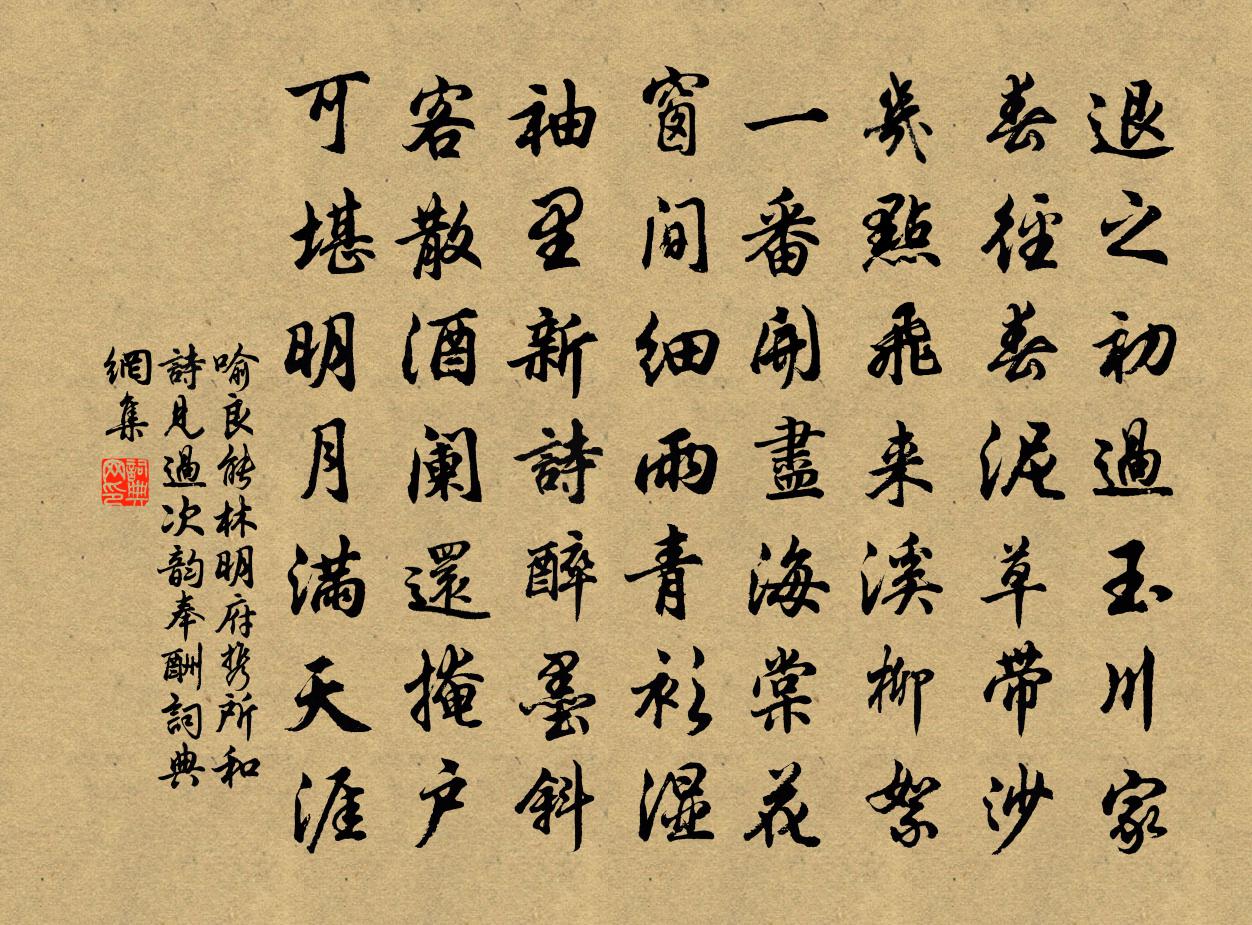 退之初過玉川家
春徑春泥草带沙
幾點飛来溪柳絮
一番開盡海棠花
窗間細雨青衫濕
袖里新詩醉墨斜
客散酒闌還掩户
可堪明月满天涯
喻良能林明府携所和
詩見過次韵奉酬詞典
網集
詞典网印